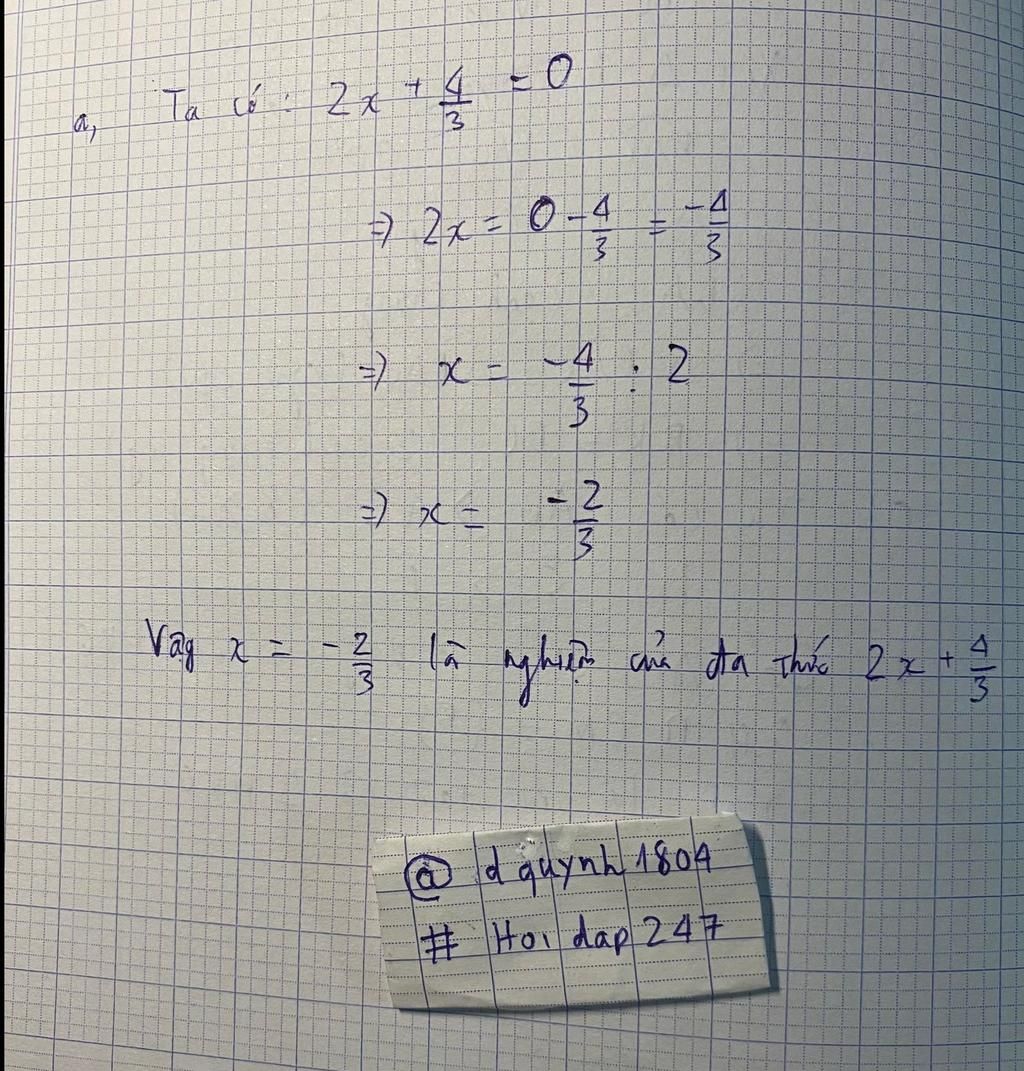 a, Ta có : 2x + 4/3 = 0
=> 2x = 0 - 4/3 = -4/3
=> x = -4/3 : 2
=> x = -2/3
Vậy x = -2/3 là nghiệm của đa thức 2x + 4/3
@ d quynh 1804
# Hoi dap 247